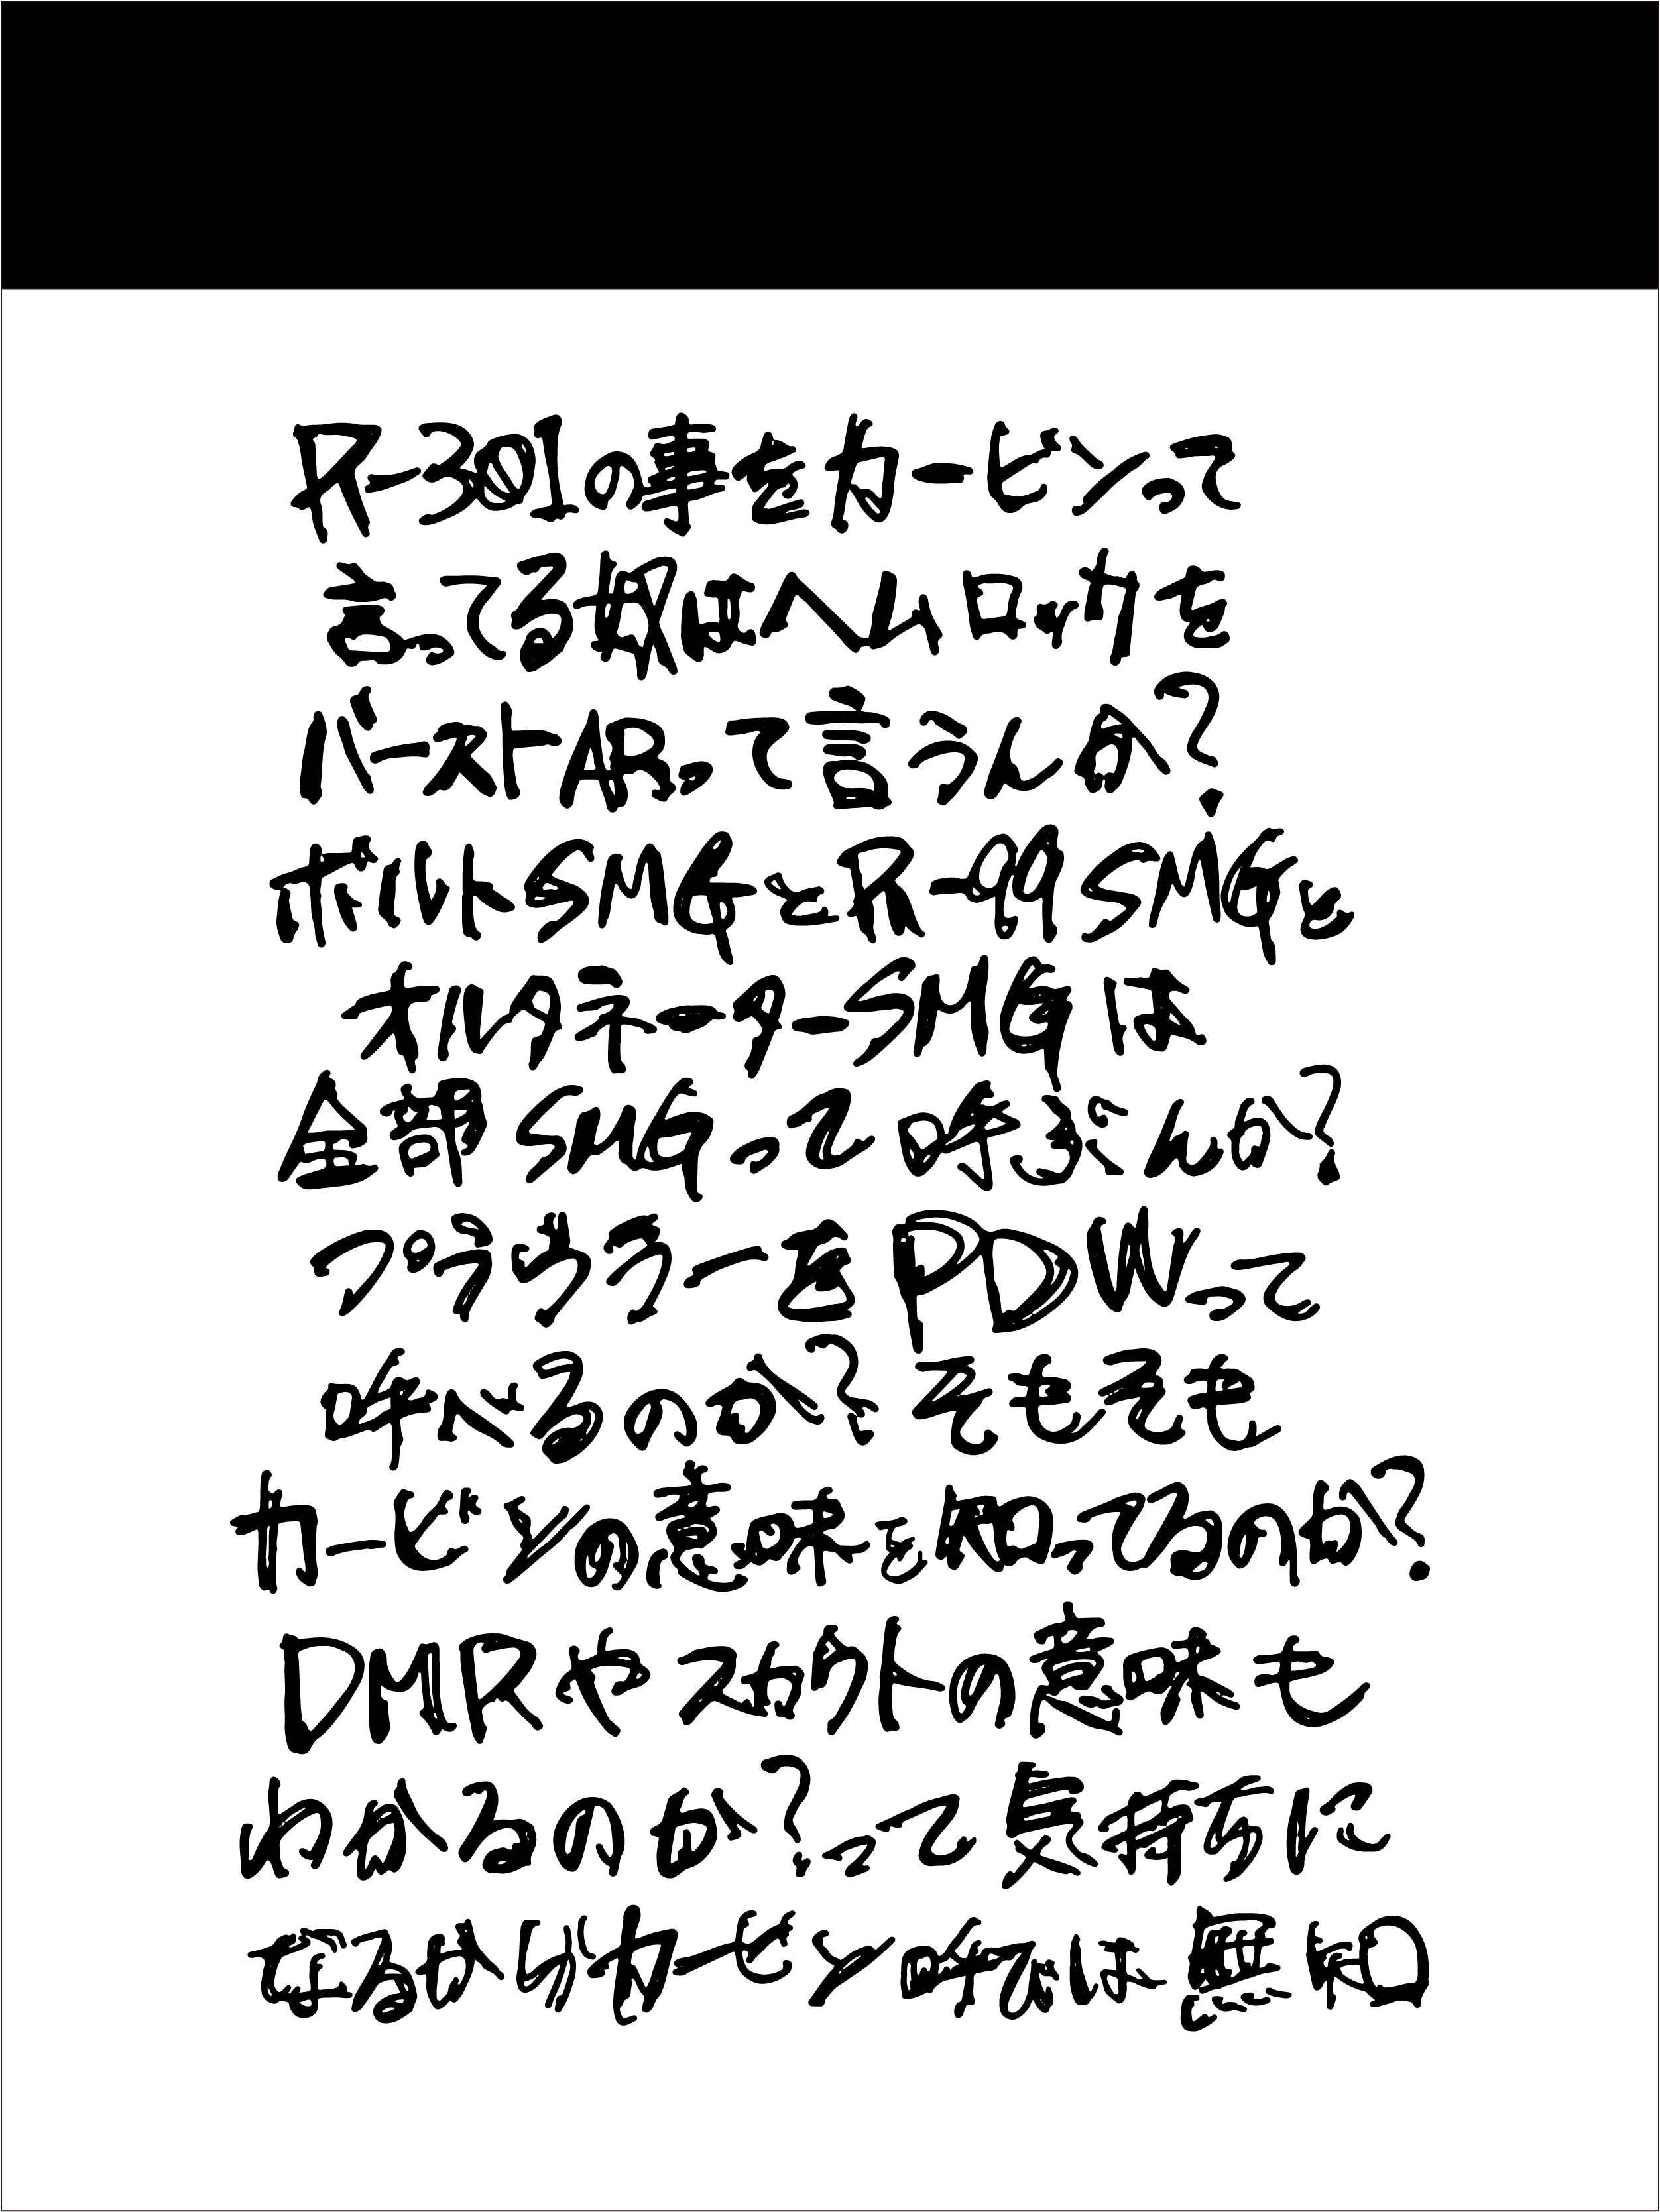 R-301の事をカービンって
言ってる奴はヘムロックを
バースト銃って言うんか?
ボルトSMGとR-99SMGと
オルタネーターSMGは
全部SMGって呼ぶんか?
プラウラーをPDWって
呼べるのか?そもそも
カービンの意味も知ってるのか?
DMRやスカウトの意味も
分かるのか?って長時間に
君がカービン呼びは悪印